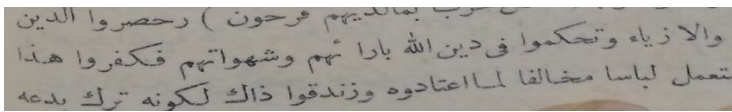 حزب بمالديهم فرحون ) رحصروا الدين
والازياء وتحكموا فى دين الله بارا ئهم وشهواتهم فكفروا هذا
تعمل لباسا مخالفا لما اعتادوه وزندقوا ذاك لكونه ترك بدعه